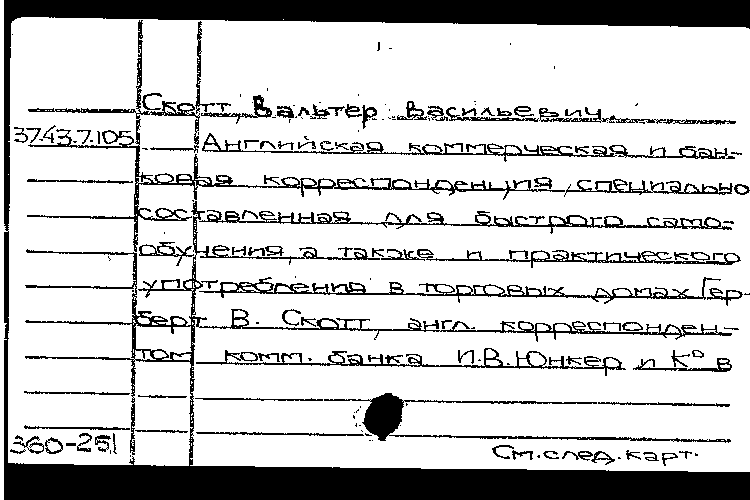 Скотт, Вальтер Васильевич.
37.43.7.105
Английская коммерческая и бан-
ковая корреспонденция, специально
составленная для быстрого само-
обучения, а также и практического
употребления в торговых домах Гер-
берт В. Скотт, англ. корреспонден-
том комм. банка И.В. Юнкер и К° в
360-251
См. след. карт.